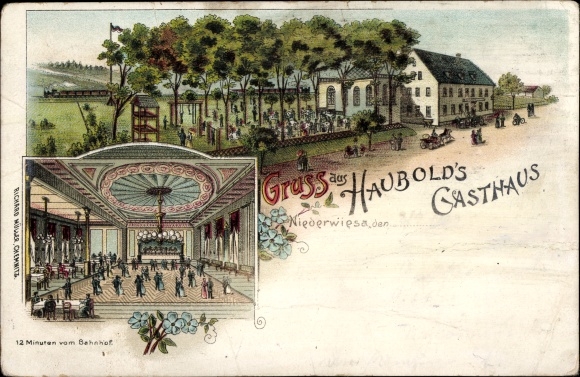 Gruss aus HAUBOLD'S
GASTHAUS
Niederwiesa, den
RICHARD MÜLLER, CHEMNITZ.
12 Minuten vom Bahnhof.